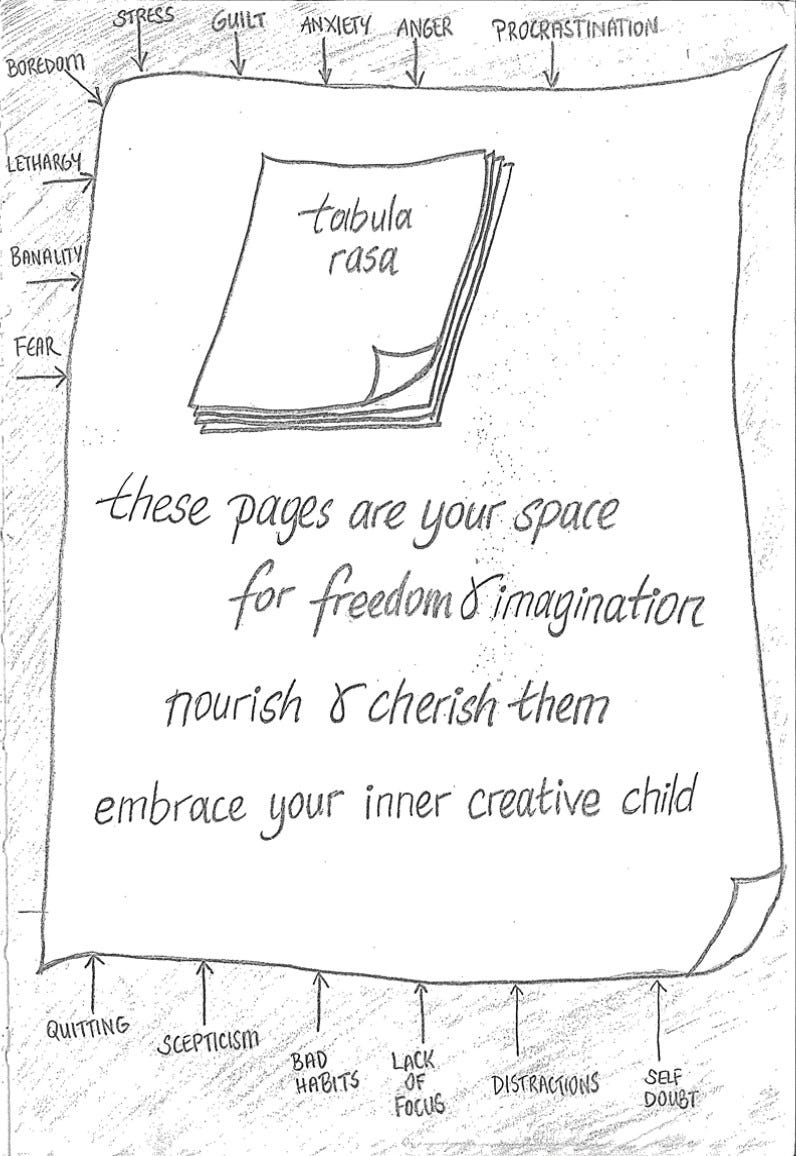 STRESS
GUILT
ANXIETY
ANGER
PROCRASTINATION
BOREDOM
LETHARGY
BANALITY
FEAR
tabula
rasa
these pages are your space
for freedom & imagination
nourish & cherish them
embrace your inner creative child
QUITTING
SCEPTICISM
BAD
HABITS
LACK
OF
FOCUS
DISTRACTIONS
SELF
DOUBT